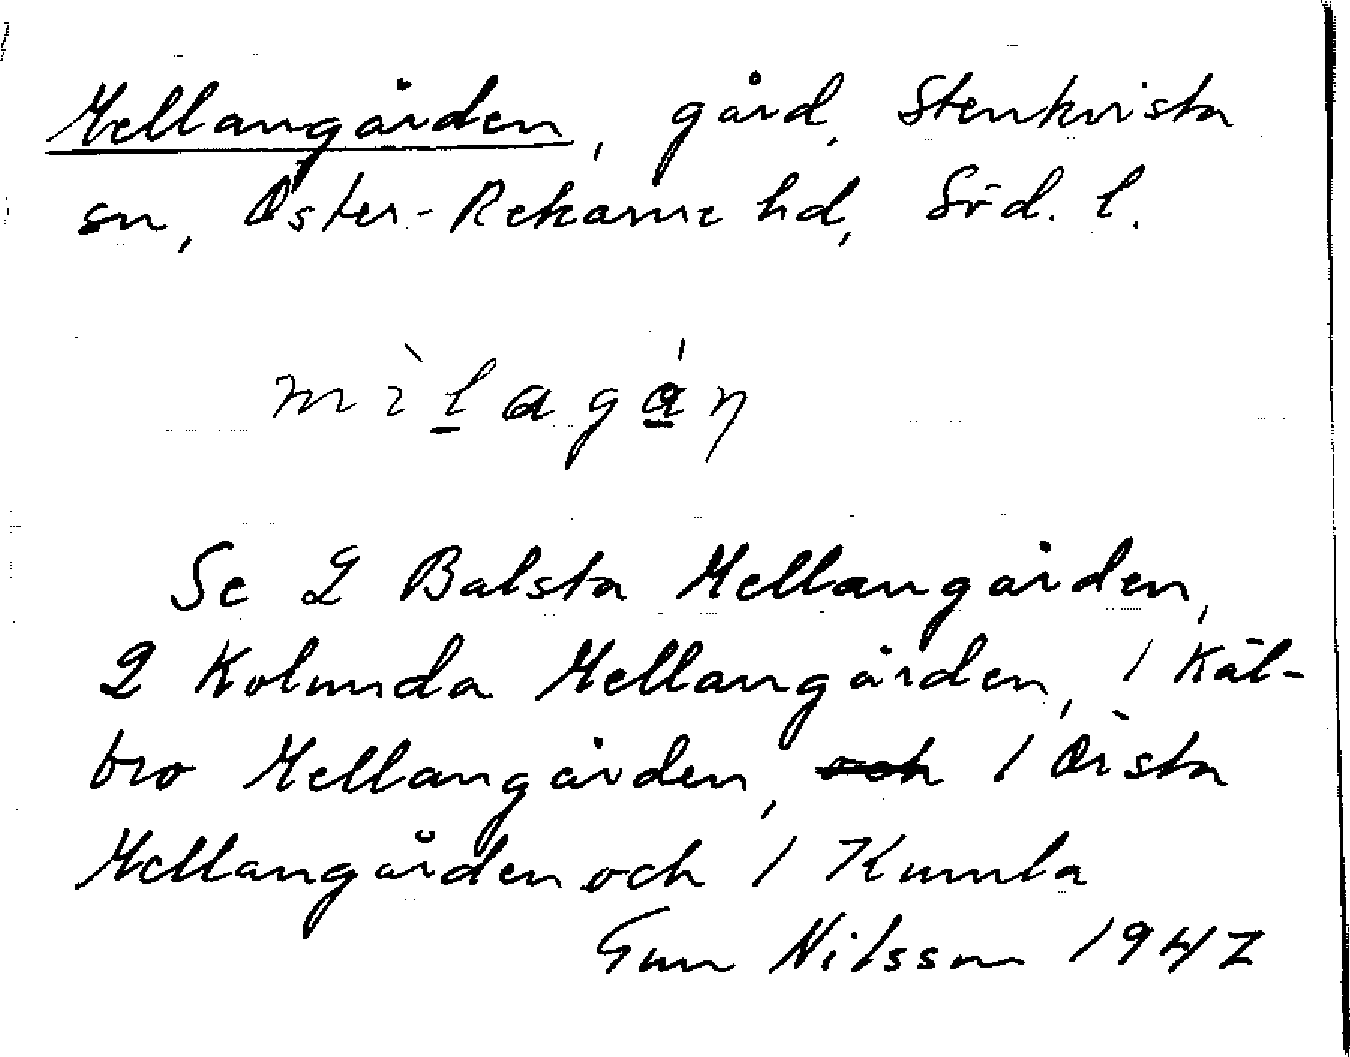 Mellangården, gård, Stenkvista
sn, Öster-Rekarne hd, Söd. l.
Se 2 Balsta Mellangården,
2 Kolunda Mellangården, 1 Käl-
bro Mellangården, och 1 Örsta
Mellangården och 1 Kumla
Gun Nilsson 1947